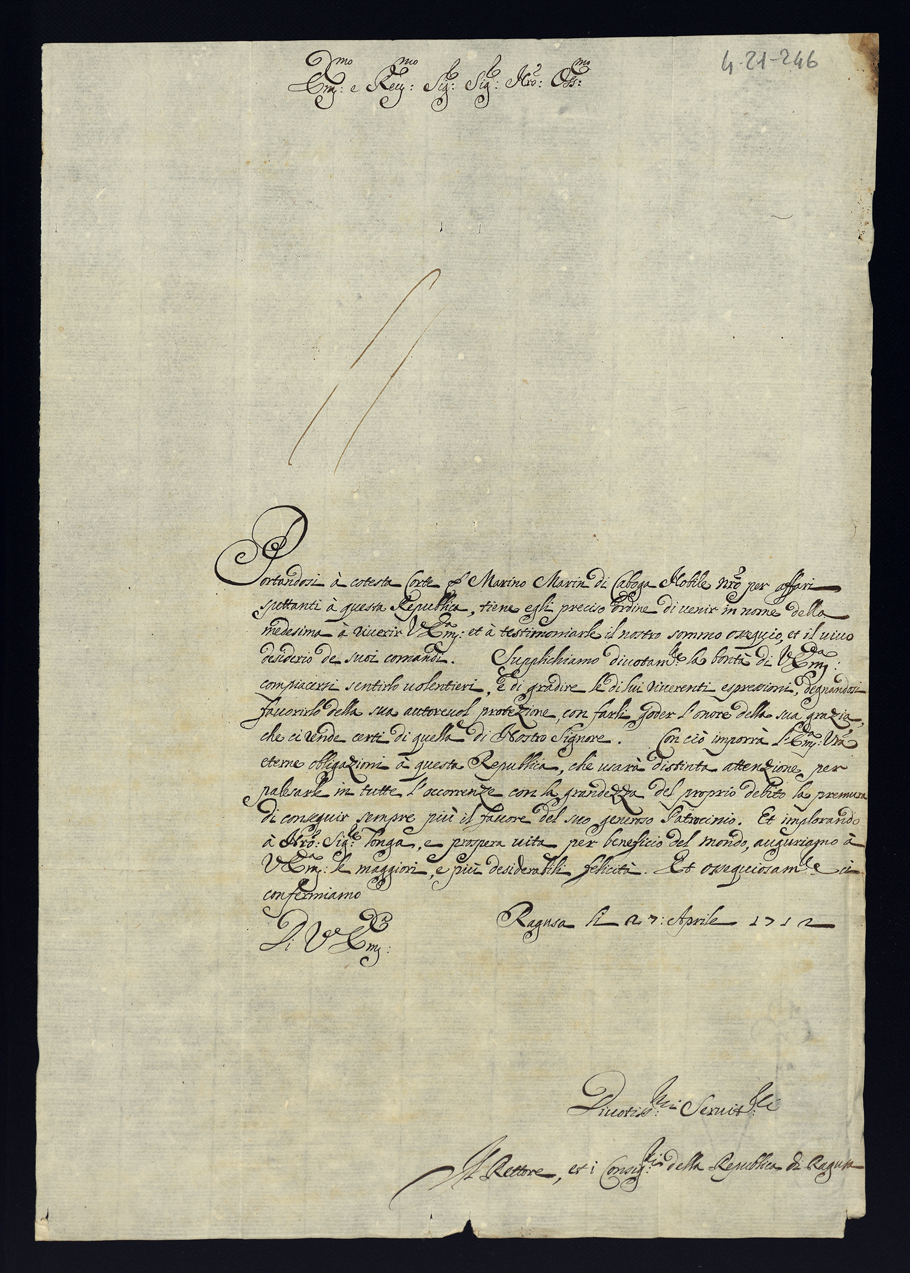 4-21-246
Em:mo e Reu:mo Sig:r Sig:r Nro: Oss:mo
Portandosi à cotesta Corte Marino Marin di Caboga Nobile nro per affari
spettanti à questa Republica, tiene egli preciso ordine di venir in nome della
medesima à riverir V.Em:za et à testimoniarle il nostro sommo ossequio, et il vivo
desiderio de suoi comandi. Supplichiamo divotam:te la bontà di V.Em:za
compiacersi sentirlo volentieri, e di gradire le di lui riverenti espressioni, degnandosi
favorirlo della sua autorevol protezione, con farli goder l'onore della sua grazia,
che ci rende certi di quella di Nostro Signore. Con ciò imporrà l'Em:za Vra
eterne obligazioni à questa Republica, che usarà distinta attenzione, per
palesarle in tutte l'occorrenze con la grandezza del proprio debito la premura
di conseguir sempre più il favore del suo generoso Patrocinio. Et implorando
à Nro: Sig:re longa, e prospera vita per beneficio del mondo, auguriamo à
V.Em:za le maggiori, e più desiderabili felicità. Et ossequiosam:te ci
confermiamo
Di V.Em:za
Ragusa li 27: Aprile 1712
Divotiss:mi Servit:ri
Il Rettore, et i Consig:ri della Republica di Ragusa